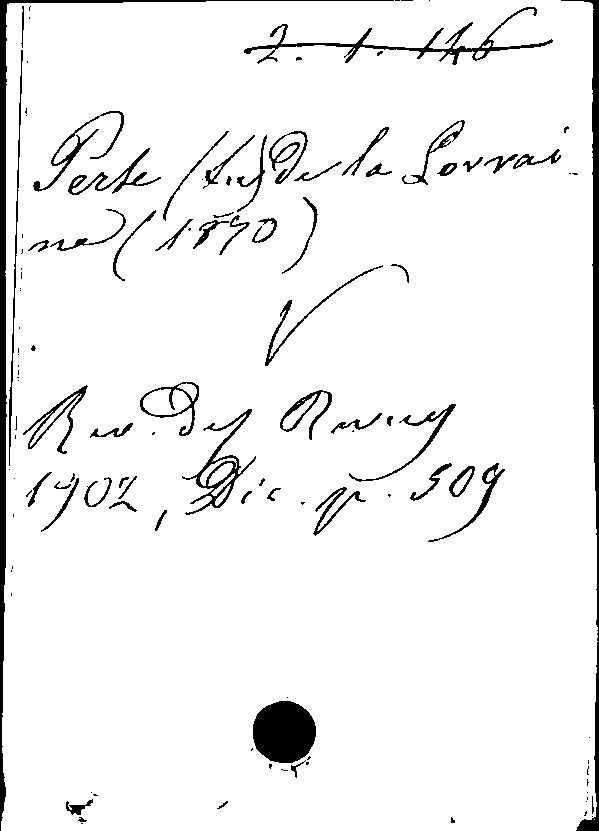 2. 1. 146
Perte (La) de la Lorrai-
ne (1870)
V
Rev. des Revues
1902, Déc. p. 509